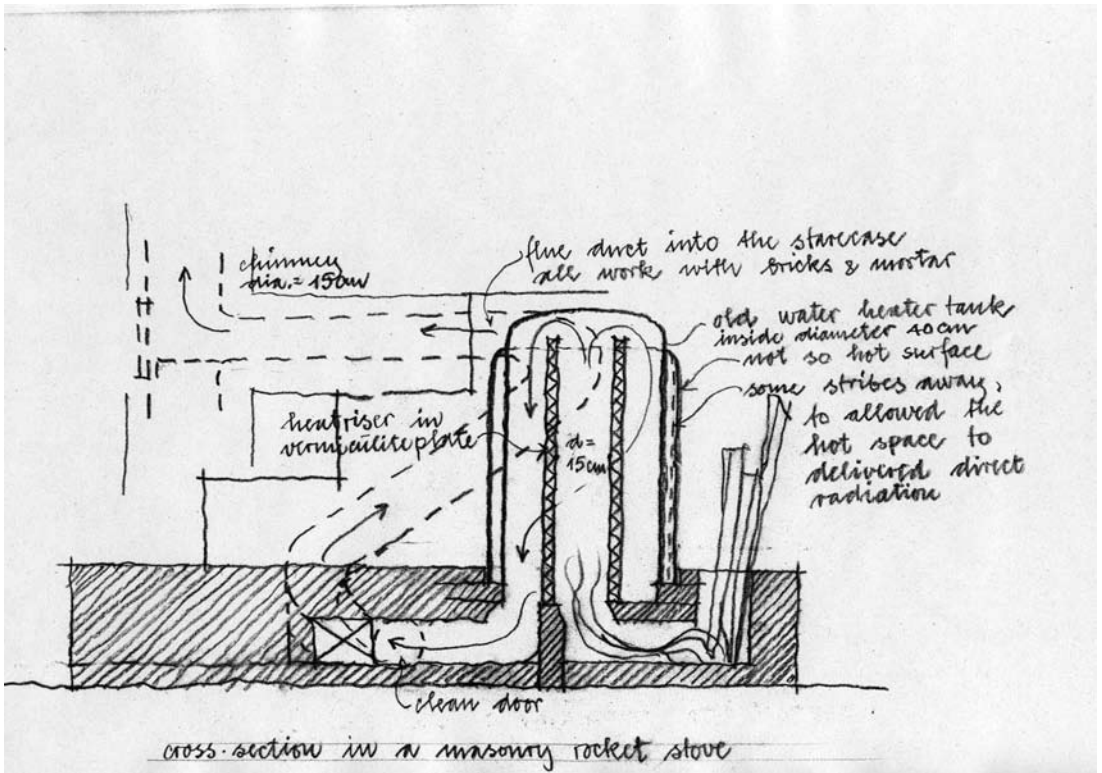 flue duct into the starecase
all work with bricks & mortar
chimney
dia. = 15cm
old water heater tank
inside diameter 40cm
not so hot surface
some stribes away,
to allowed the
hot space to
delivered direct
radiation
heatriser in
vermiculiteplate
d =
15cm
clean door
cross-section in a masonry rocket stove